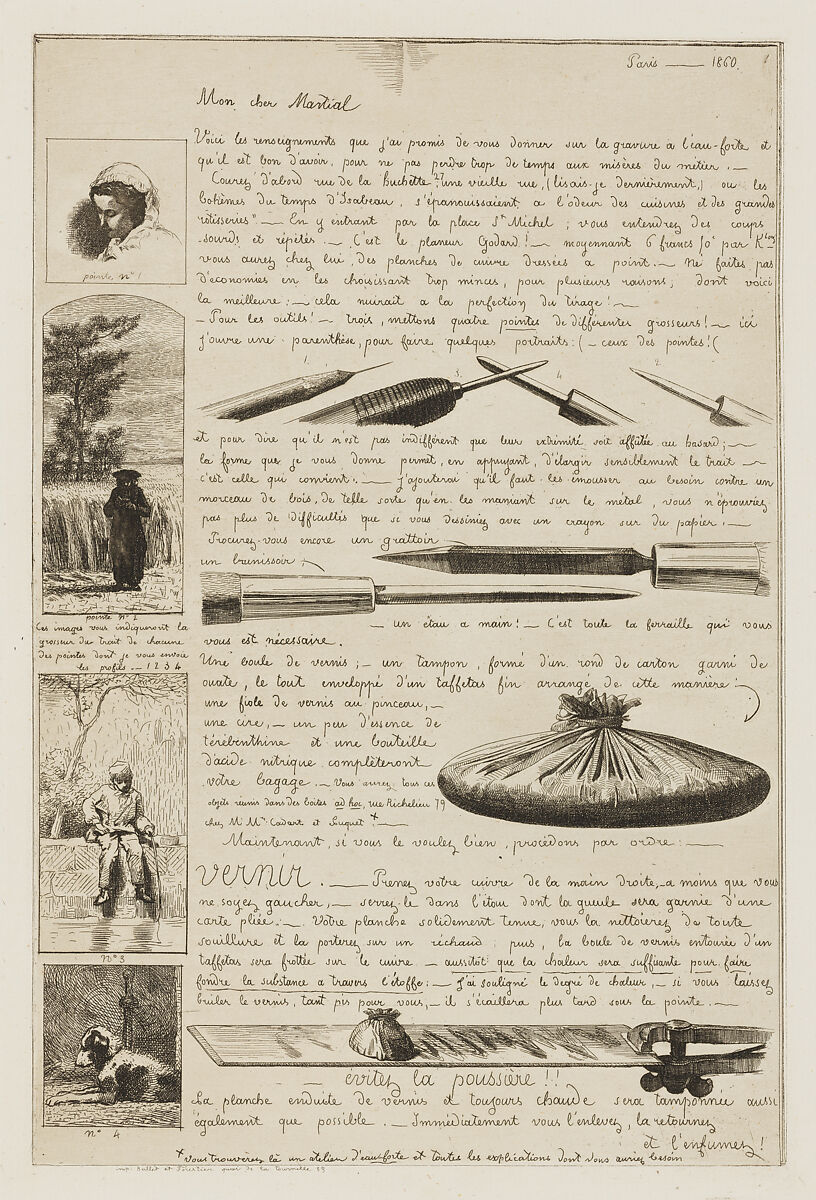 Paris — 1860.
Mon cher Martial
Voici les renseignements que j'ai promis de vous donner sur la gravure à l'eau-forte et
qu'il est bon d'avoir, pour ne pas perdre trop de temps aux misères du métier. —
Courez d'abord rue de la huchette 27 "une vieille rue, (lisais-je dernièrement,) ou les
bohêmes du temps d'Isabeau, s'épanouissaient a l'odeur des cuisines et des grandes
rotisseries" — En y entrant par la place St Michel ; vous entendrez des coups
sourds et répétés. — C'est le planeur Godard ! — moyennant 6 francs 50 par K
vous aurez chez lui, des planches de cuivre dressées a point. — Ne faites pas
d'économies en les choisissant trop minces, pour plusieurs raisons ; dont voici
la meilleure : — cela nuirait a la perfection du tirage ! —
— Pour les outils ! — trois, mettons quatre pointes de differentes grosseurs ! — ici
j'ouvre une parenthèse, pour faire quelques portraits : ( — ceux des pointes ! (
pointe n° 1
1
3.
4
2.
et pour dire qu'il n'est pas indifférent que leur extrimité soit affûtée au hasard ; —
la forme que je vous donne permet, en appuyant, d'élargir sensiblement le trait —
c'est celle qui convient. — J'ajouterai qu'il faut les émousser au besoin contre un
morceau de bois, de telle sorte qu'en les maniant sur le métal, vous n'éprouviez
pas plus de difficultés que si vous dessiniez avec un crayon sur du papier. —
Procurez-vous encore un grattoir
un brunissoir ;
— un étau a main ! — C'est toute la ferraille qui vous
vous est nécessaire.
pointe n° 2
Ces images vous indiqueront la
grosseur du trait de chacune
des pointes dont je vous envoie
les profils — 1 2 3 4
Une boule de vernis ; — un tampon, formé d'un rond de carton garni de
ouate, le tout enveloppé d'un taffetas fin arrangé de cette manière :
une fiole de vernis au pinceau, —
une cire, — un peu d'essence de
térébenthine et une bouteille
d'acide nitrique complèteront
votre bagage. — Vous aurez tous ces
objets réunis dans des boites ad hoc, rue Richelieu 79
chez M Mrs Cadart et Luquet + —
Maintenant, si vous le voulez bien, procédons par ordre : —
vernir. — Prenez votre cuivre de la main droite, a moins que vous
ne soyez gaucher, — serrez-le dans l'étau dont la gueule sera garnie d'une
carte pliée. — Votre planche solidement tenue, vous la nettoierez de toute
souillure et la porterez sur un réchaud ; puis, la boule de vernis entourée d'un
taffetas sera frottée sur le cuivre — aussitôt que la chaleur sera suffisante pour faire
fondre la substance a travers l'étoffe : — J'ai souligné le degré de chaleur, — si vous laissez
brûler le vernis, tant pis pour vous, — il s'écaillera plus tard sous la pointe. —
n° 3
— évitez la poussière !!
La planche enduite de vernis et toujours chaude sera tamponnée aussi
également que possible. — Immédiatement vous l'enlevez, la retournez
et l'enfumez !
n° 4
+ vous trouverez là un atelier d'eau forte et toutes les explications dont vous auriez besoin
quai de la Tournelle